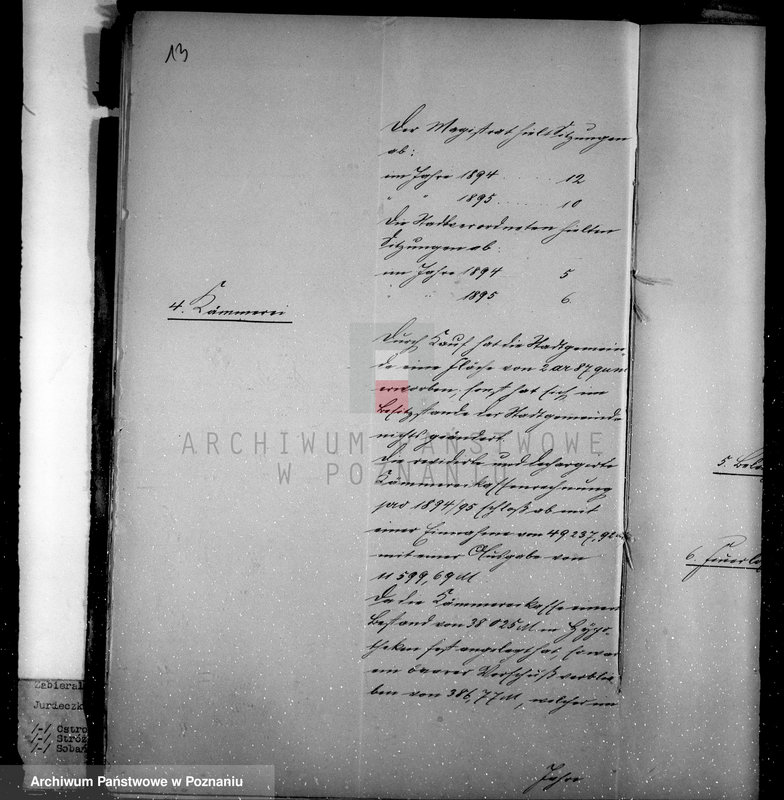 13
Der Magistrat hielt Sitzungen
ab:
im Jahre 1894 ........ 12
" " 1895 ........ 10
Die Stadtverordneten hielten
Sitzungen ab:
im Jahre 1894 5
" " 1895 6.
4. Kämmerei
Durch Kauf hat die Stadtgemein-
de eine Fläche von 2 ar 87 qum
erworben, sonst hat sich im
Besitzstande der Stadtgemeinde
nichts geändert.
Die revidirte und dechargirte
Kämmereikassenrechnung
pro 1894/95 schloß ab mit
einer Einnahme von 49237,92 M
mit einer Ausgabe von
11 599,69 M
Da die Kämmereikasse einen
Bestand von 38 025 M in Hypo-
theken fest angelegt hat, so war
ein baarer Vorschuß verblie-
ben von 386,77 M, welcher im
Jahre
5. Bele
6. Feuerlö
ARCHIWUM PAŃSTWOWE
W POZNANIU
Zabieral
Jurieczk
/-/ Ostro
/-/ Stróż
/-/ Sobań
Archiwum Państwowe w Poznaniu